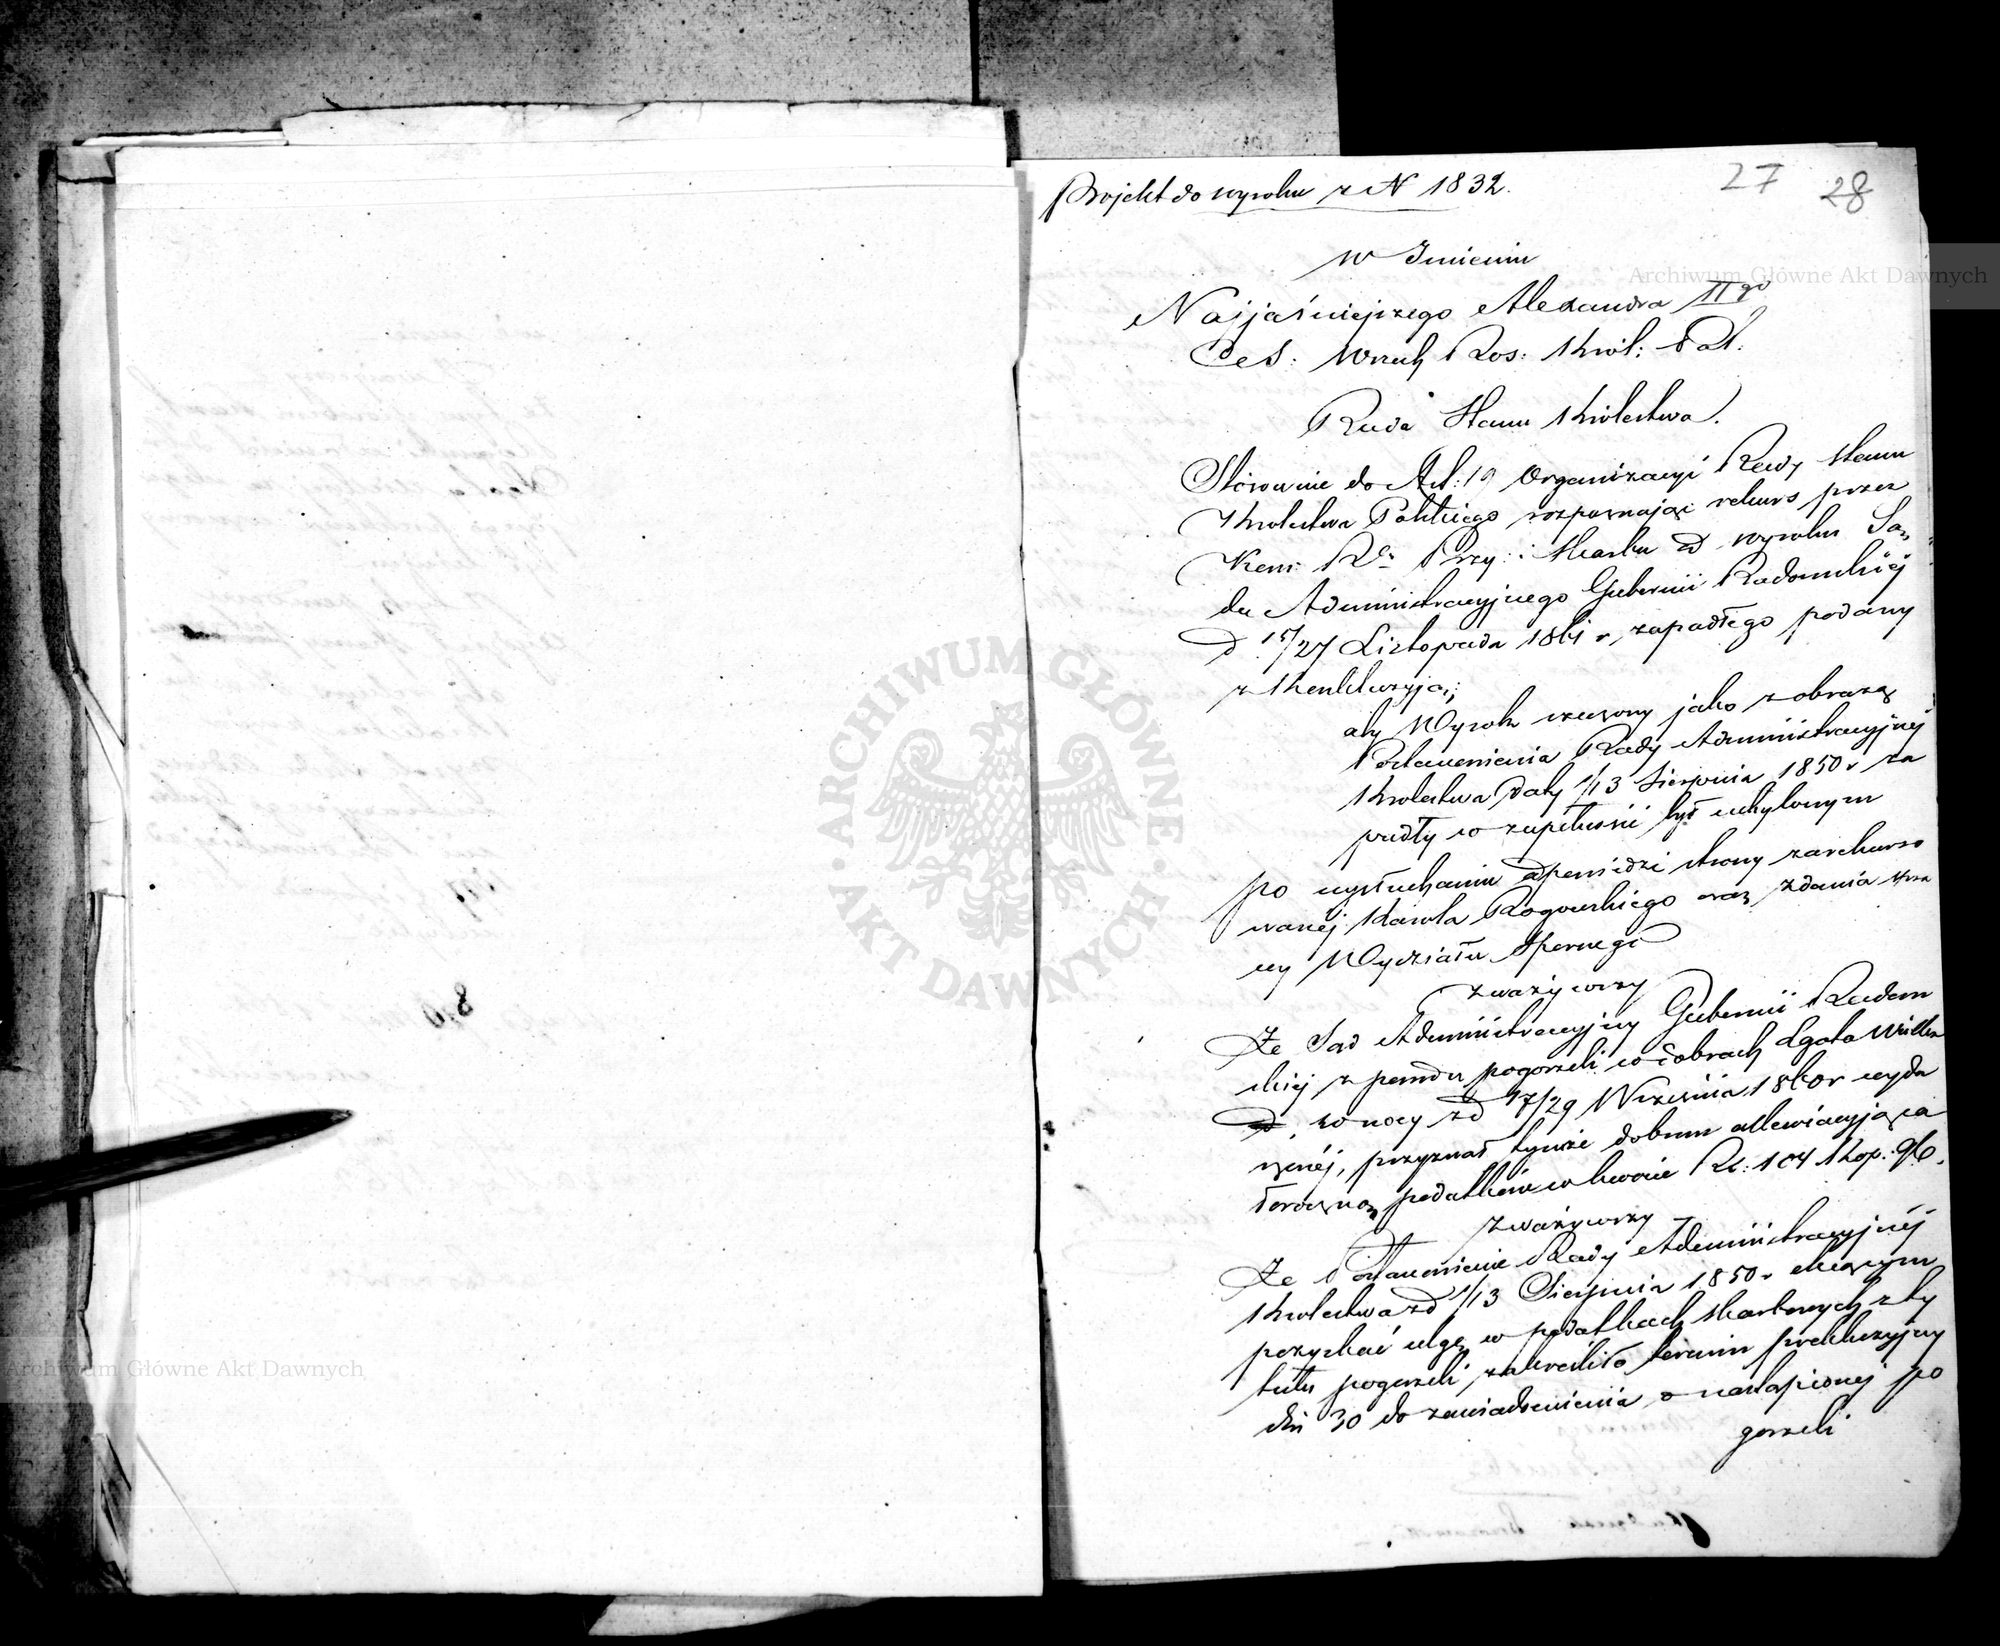 Projekt do wyroku z N 1832.
27
28
w Imieniu
Najjaśniejszego Alexandra IIgo
Ces: Wszech Ros: Król: Pol:
Rada Stanu Królestwa.
Stósownie do Art: 19 Organizacyi Rady Stanu
Królestwa Polskiego rozpoznając rekurs przez
Kom: Rz Przy: i Skarbu od wyroku Są
du Administracyjnego Gubernii Radomskiéj
d 15/27 Listopada 1861 r, zapadłego podany
z Konkluzyją;
aby Wyrok rzeczony jako z obrazą
Postanowienia Rady Administracyjnej
Królestwa daty 1/13 Sierpnia 1850 r za
padły w zupełności był uchylonym
po wysłuchaniu odpowiedzi strony zarekurso
wanéj Karola Rogowskiego oraz zdania Spra
wy Wydziału Spornego
zważywszy
Że Sąd Administracyjny Gubernii Radom
skiej z powodu pogorzeli w dobrach Lgota Wielka
w nocy z d 17/29 Września 1860 r wyda
rzonéj, przyznał tymże dobrom allewiacyją ca
łoroczną podatków w kwocie Rs: 104 Kop: 96.
zważywszy
Że Postanowienie Rady Administracyjnéj
Królestwa z d 1/13 Sierpnia 1850 r chcącym
pozyskać ulgę w podatkach skarbowych z ty
tułu pogorzeli, zakreśliło termin prekluzyjny
dni 30 do zawiadomienia o nastąpionej po
gorzeli
Archiwum Główne Akt Dawnych
Archiwum Główne Akt Dawnych
ARCHIWUM GŁÓWNE · AKT DAWNYCH ·